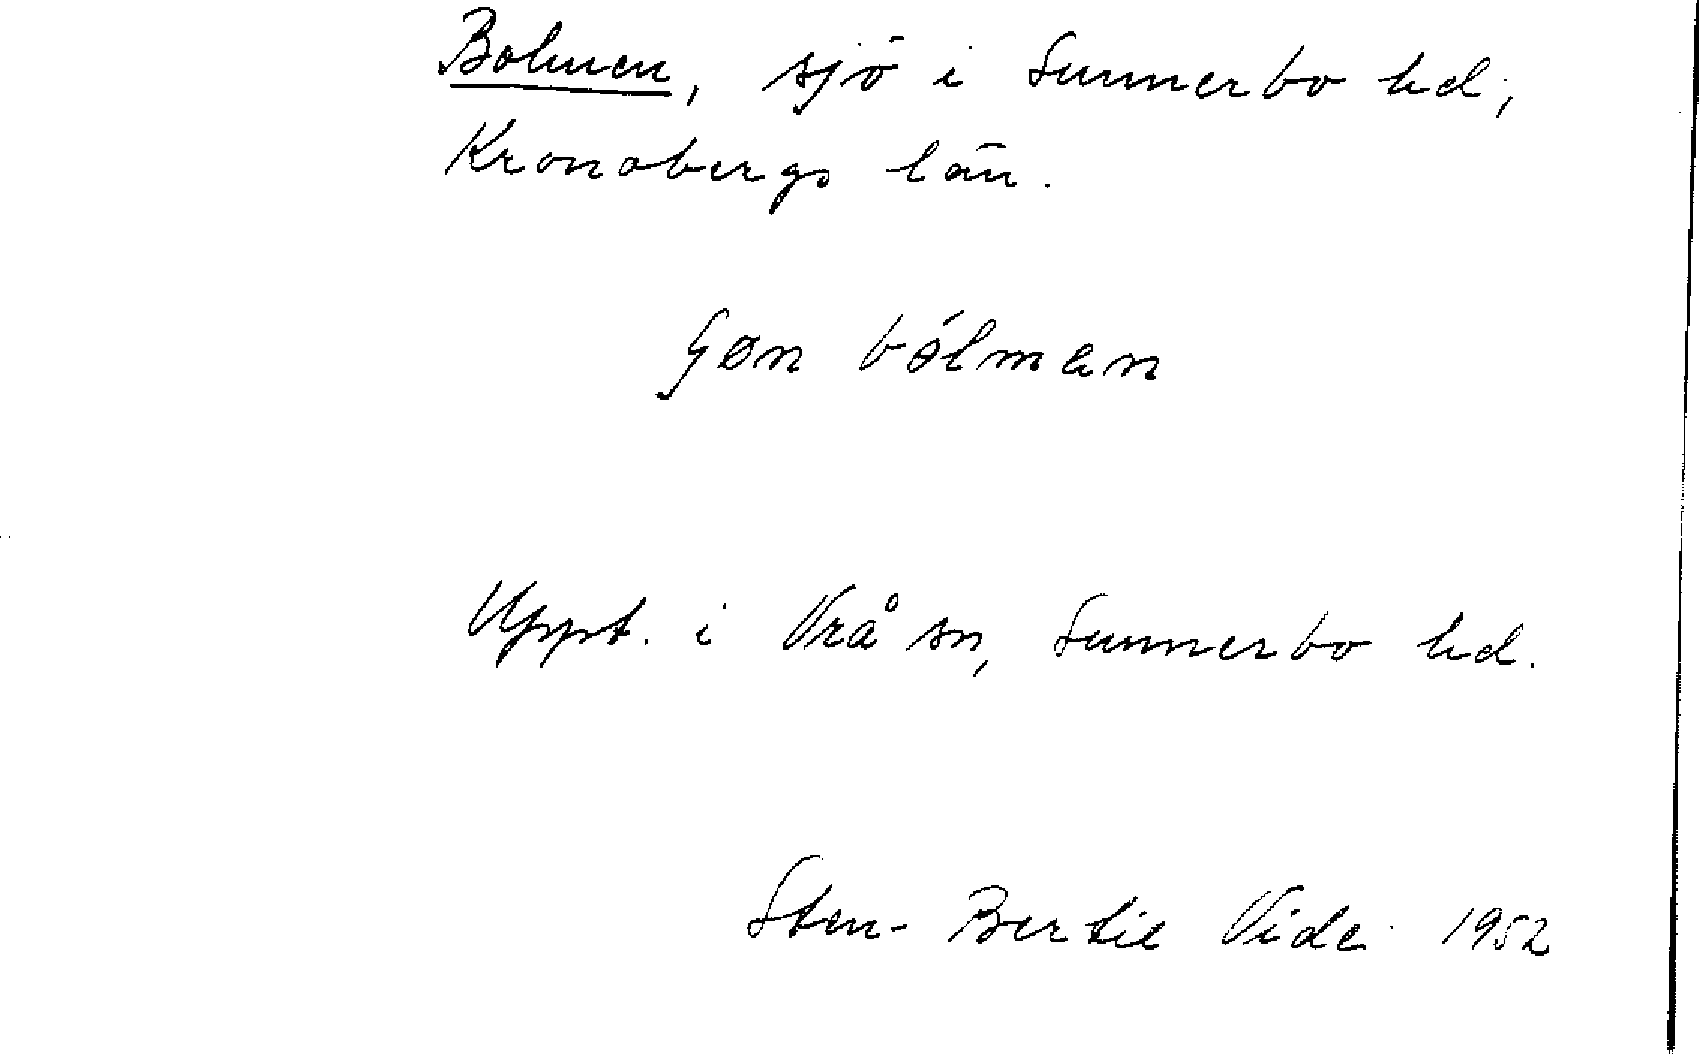 Bolmen, sjö i Sunnerbo hd,
Kronobergs län.
sjøn bólmen
Uppt. i Vrå sn, Sunnerbo hd.
Sten-Bertil Vide 1952